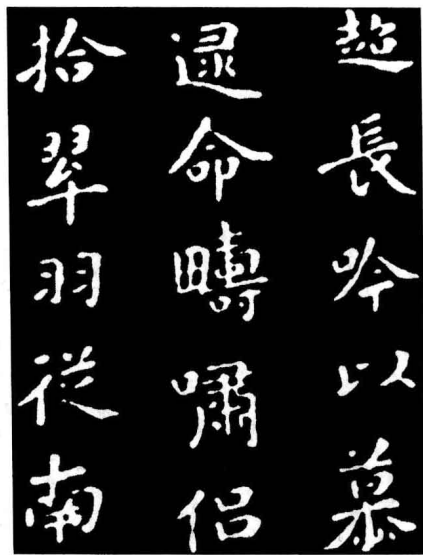 超長吟以慕
遝命疇嘯侶
拾翠羽從南